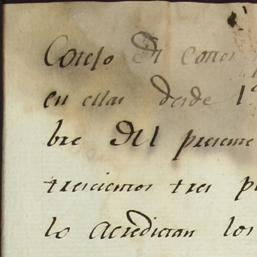 Costo De
en ellas desde 1º
bre Del presente
trescientos tres p
lo acreditan los